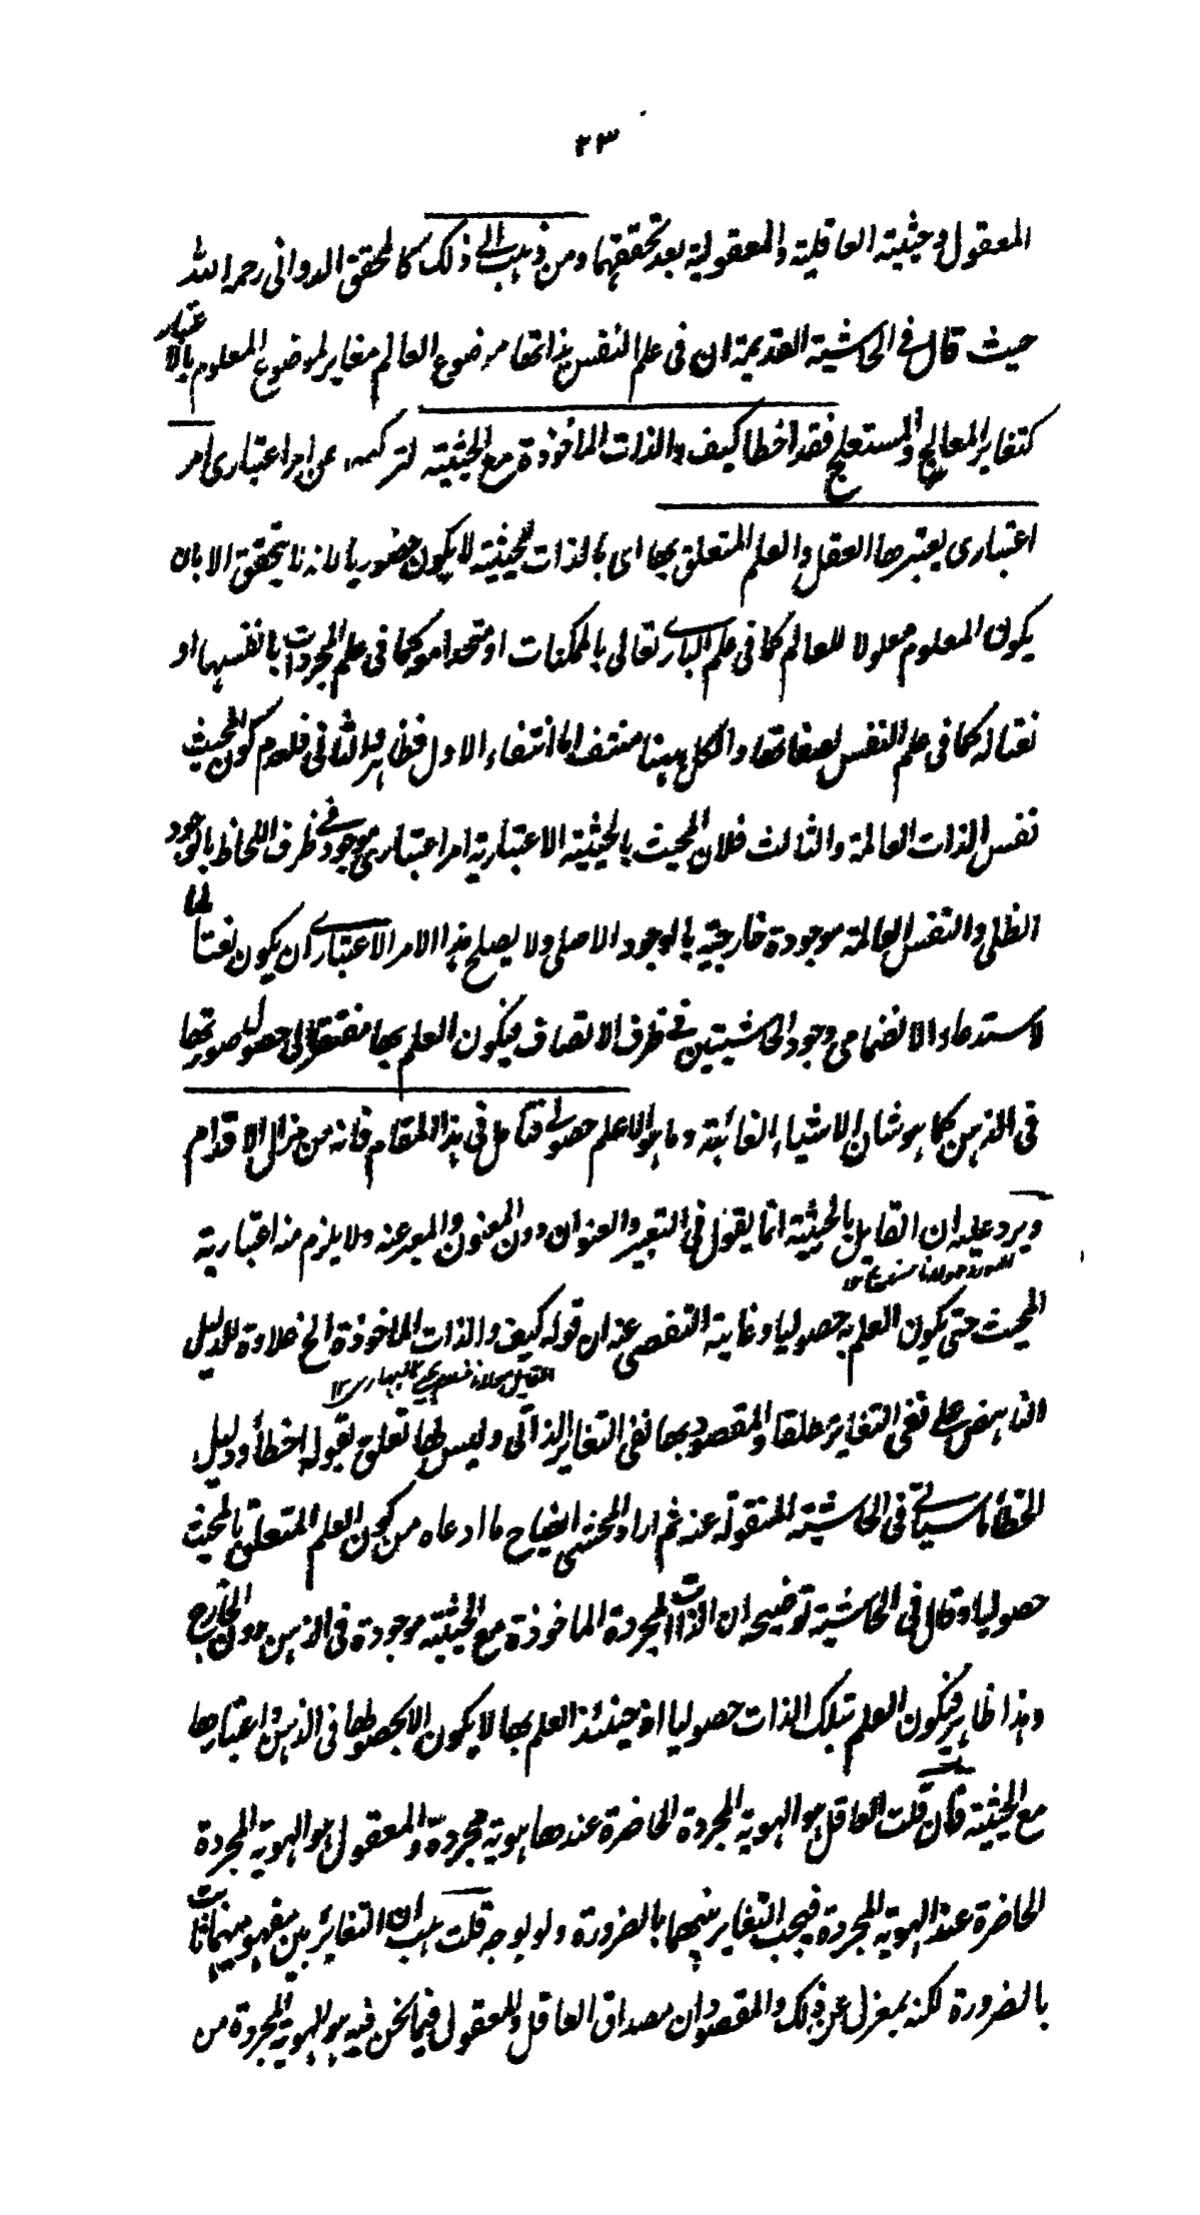 ٢٣
المعقول وحيثية العاقلية والمعقولية بعد تحققهما ومن ذهب الى ذلك كالمحقق الدوانى رحمه الله
حيث قال فى الحاشية القديمة ان فى علم النفس بذاتها موضوع العالم مغاير لموضوع المعلوم بالاعتبار
كتغاير المعالج والمستعلج فقد اخطأ كيف والذات المأخوذة مع الحيثية لتركبه عن امر اعتبارى امر
اعتبارى يعتبرها العقل والعلم المتعلق بها اى بالذات المحيثية لا يكون حضوريا لانه انما يتحقق الا بان
يكون المعلوم معلولا للعالم كما فى علم البارى تعالى بالممكنات او متحدا معه كما فى علم المجردات بانفسها او
نعتا له كما فى علم النفس بصفاتها والكل ههنا منتف اما انتفاء الاول فظاهر واما الثانى فلعدم كون المحيث
نفس الذات العالمة والثالث فلان المحيث بالحيثية الاعتبارية امر اعتبارى موجود فى ظرف اللحاظ بالوجود
الظلى والنفس العالمة موجودة خارجية بالوجود الاصلى ولا يصلح هذا الامر الاعتبارى ان يكون نعتا لها
لاستدعاء الانضمامى وجود الحاشيتين فى ظرف الاتصاف فيكون العلم بها مفتقرا الى حصول صورتها
فى الذهن كما هو شان الاشياء الغائبة وما هو الا علم حصولى فتأمل فى هذا المقام فانه من مزال الاقدام
ويرد عليه ان القايل بالحيثية انما يقول فى التعبير والعنوان دون المعنون والمعبر عنه ولا يلزم منه اعتبارية
المحيث حتى يكون العلم به حصوليا وغاية التفصى عنه ان قوله كيف والذات الماخوذة الخ علاوة للدليل
الناهض على نفى التغاير مطلقا والمقصود بها نفى التغاير الذاتى وليس لها تعلق بقوله اخطأ ودليل
الخطأ ما سيأتى فى الحاشية المنقولة عنه ثم اراد المحشى ايضاح ما ادعاه من كون العلم المتعلق بالمحيث
حصوليا وقال فى الحاشية توضيحه ان الذات المجردة الماخوذة مع الحيثية موجودة فى الذهن دون الخارج
وهذا ظاهر فيكون العلم بتلك الذات حصوليا اذ حينئذ العلم بها لا يكون الا بحصولها فى الذهن واعتبارها
مع الحيثية فان قلت العاقل هو الهوية المجردة الحاضرة عندها هوية مجردة والمعقول هو الهوية المجردة
الحاضرة عند الهوية المجردة فيجب التغاير بينهما بالضرورة ولو بوجه قلت هب ان التغاير بين مفهوميهما ثابت
بالضرورة لكنه بمعزل عن ذلك والمقصود ان مصداق العاقل والمعقول فيما نحن فيه هو الهوية المجردة من